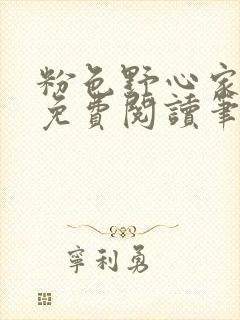 粉色野心家
免費閱讀筆
寧利勇